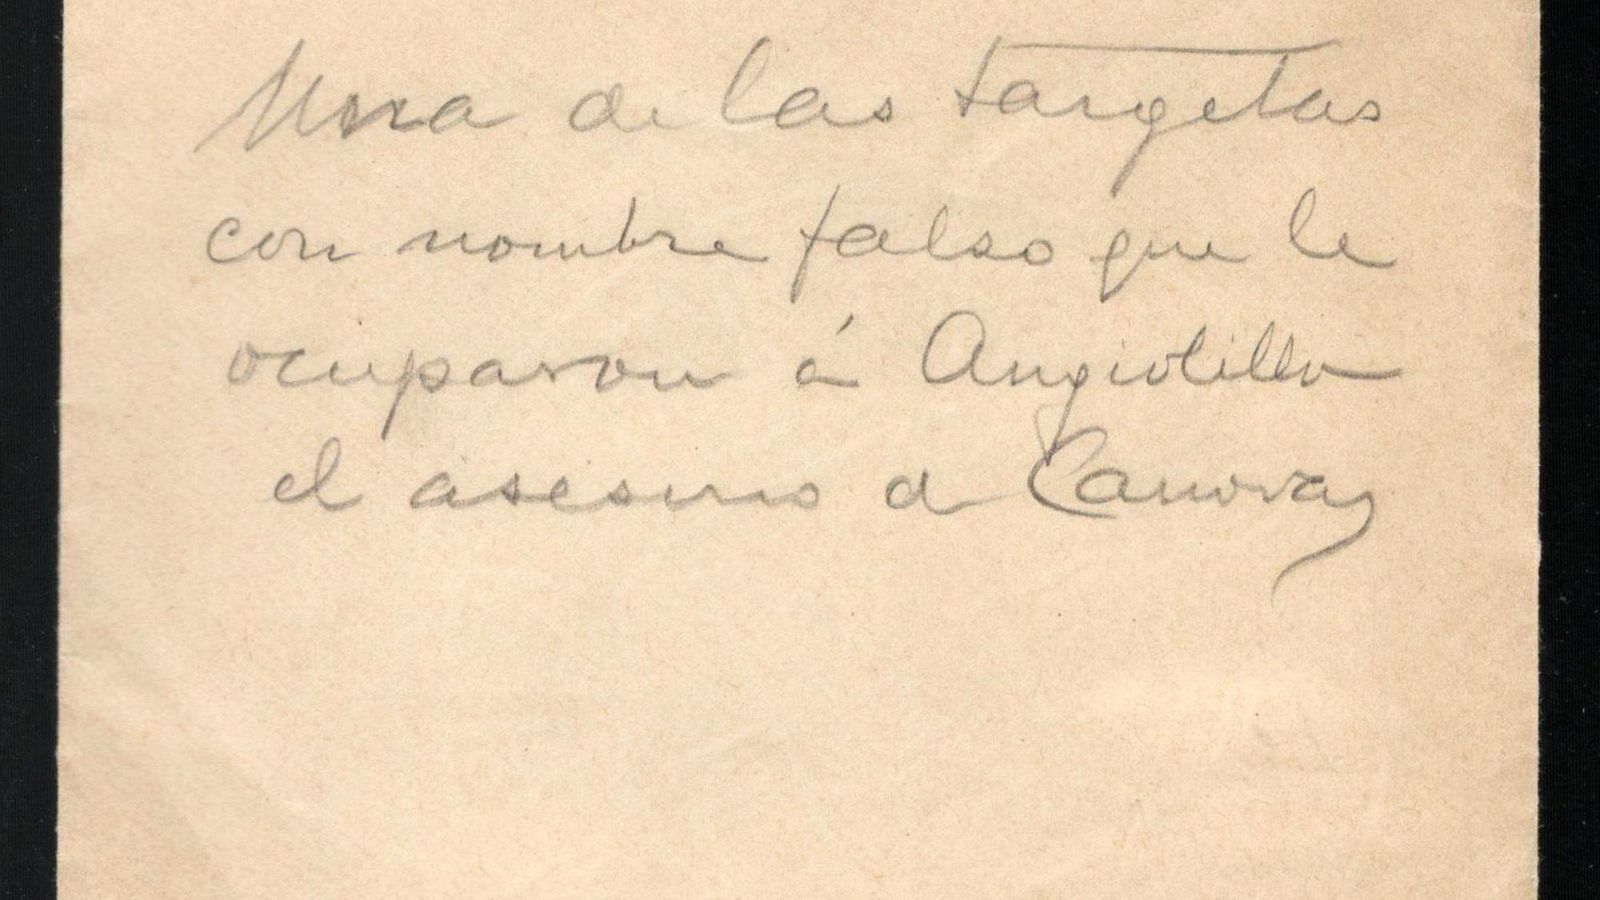 Una de las targetas
con nombre falso que le
ocuparon á Angiolillo
el asesino de Canovas